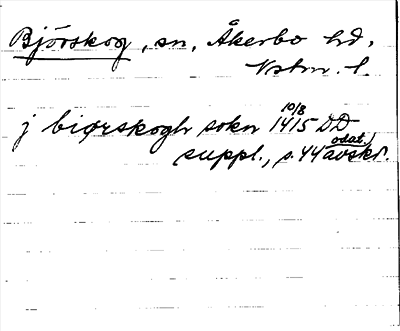 Björskog, sn, Åkerbo hd,
Vstm. l.
j biørskogh sokn 10/8 1415 DD
suppl., s. 44 odat. avskr.